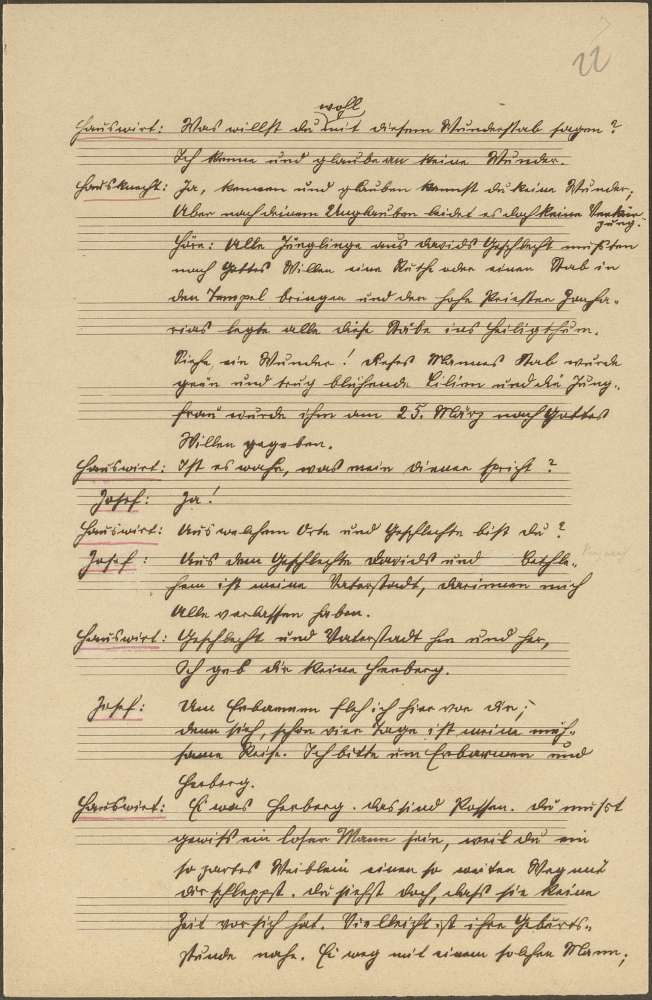 22
wohl
Hauswirt: Was willst du mit diesem Wunderstab sagen?
Ich kenne und glaube an keine Wunder.
Hausknecht: Ja, kennen und glauben kannst du keine Wunder;
Aber nach deinem Unglauben leidet es doch keine Verkür-
zung.
Höre: Alle Jünglinge aus Davids Geschlecht mußten
nach Gottes Willen eine Ruthe oder einen Stab in
den Tempel bringen und der hohe Priester Zacha-
rias legte alle diese Stäbe ins Heiligthum.
Siehe, ein Wunder! Dieses Mannes Stab wurde
grün und trug blühende Lilien und die Jung-
frau wurde ihm am 25. März nach Gottes
Willen gegeben.
Hauswirt: Ist es wahr, was mein Diener spricht?
Josef: Ja!
Hauswirt: Aus welchem Orte und Geschlechte bist du?
Josef: Aus dem Geschlechte Davids und Bethle-
hem ist meine Vaterstadt, darinnen mich
Alle verlassen haben.
Hauswirt: Geschlecht und Vaterstadt hin und her,
Ich geb dir keine Herberg.
Josef: Um Erbarmen fleh ich hier vor dir;
denn sieh, schon vier Tage ist meine müh-
same Reise. Ich bitte um Erbarmen und
Herberg.
Hauswirt: Ei was Herberg. das sind Possen. Du mußt
gewiß ein loser Mann sein, weil du ein
so zartes Weiblein einen so weiten Weg mit
dir schleppst. Du siehst doch, daß sie keine
Zeit vor sich hat. Vielleicht ist ihre Geburts-
stunde nahe. Ei weg mit einem solchen Mann;